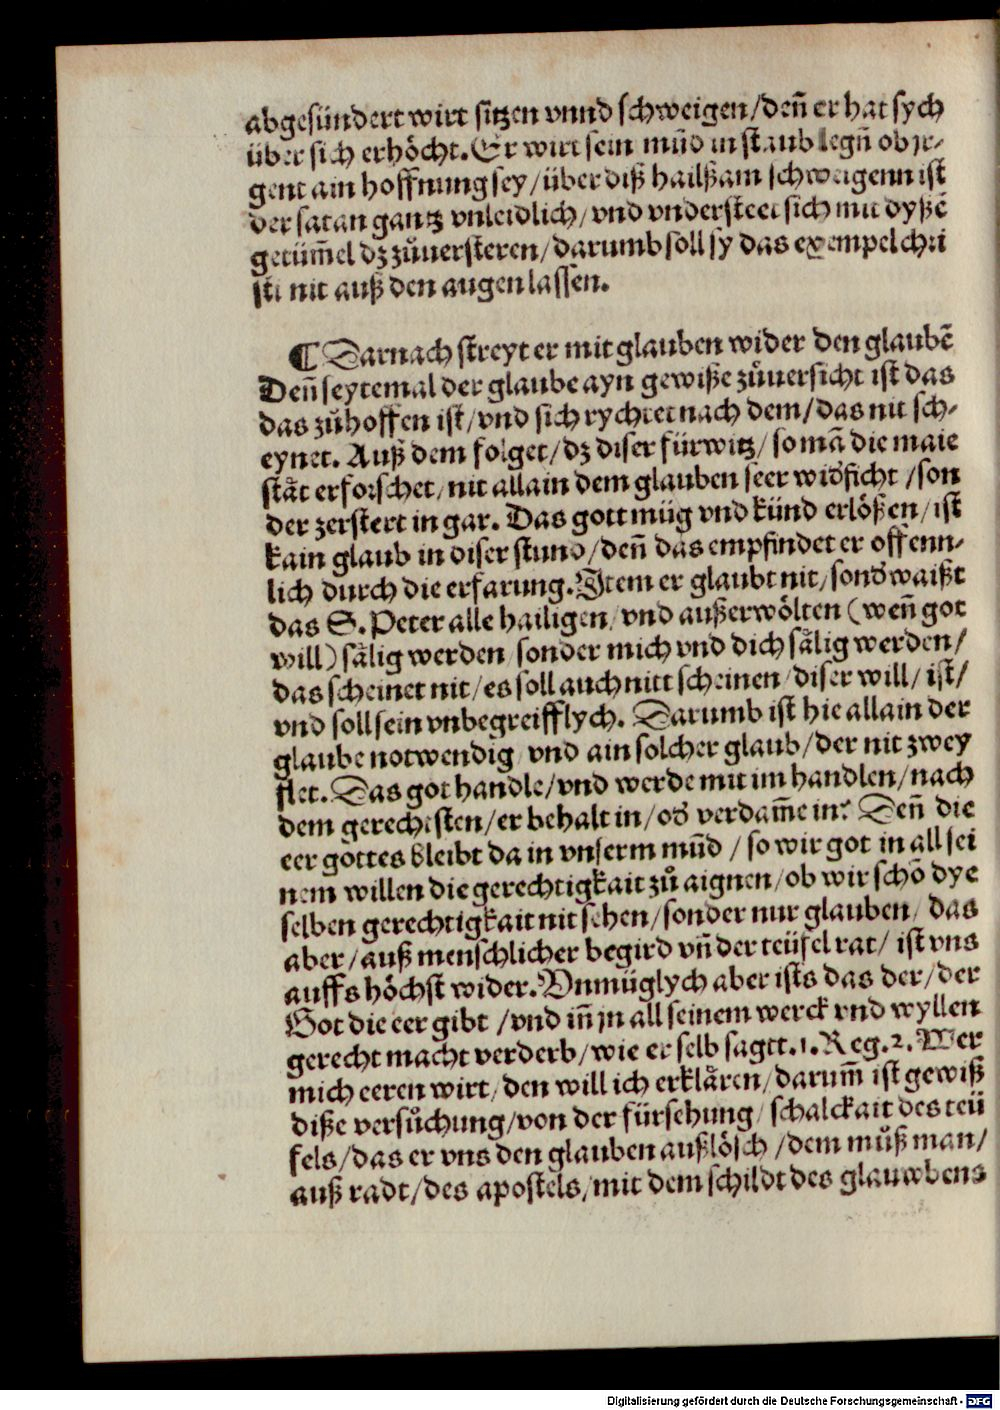 abgesündert wirt sitzen vnnd schweigen/deñ er hat sych
über sich erhöcht. Er wirt sein mūd in staub legñ ob jr-
gent ain hoffnung sey/über diß hailßam schweigenn ist
der satan gantz vnleidlich/vnd vndersteet sich mit dyßē
getüm̃el dz zůuersteren/darumb soll sy das exempel chri
sti nit auß den augen lassen.
¶ Darnach streyt er mit glauben wider den glaubē
Deñ seytemal der glaube ayn gewiße zůuersicht ist das
das zůhoffen ist/vnd sich rychtet nach dem/das nit sch-
eynet. Auß dem folget/dz diser fürwitz/so mā die maie
stät erforschet/nit allain dem glauben seer wid̕ficht/son
der zerstert in gar. Das gott müg vnd künd erlößen/ist
kain glaub in diser stund/deñ das empfindet er offenn-
lich durch die erfarung. Item er glaubt nit/sond̕ waißt
das S. Peter alle hailigen/vnd außerwölten (weñ got
will) sälig werden/sonder mich vnd dich sälig werden/
das scheinet nit/es soll auch nitt scheinen/diser will/ist/
vnd soll sein vnbegreifflych. Darumb ist hie allain der
glaube notwendig/vnd ain solcher glaub/der nit zwey
flet. Das got handle/vnd werde mit im handlen/nach
dem gerechtsten/er behalt in/od̕ verdam̃e in? Deñ die
eer gottes bleibt da in vnserm mūd/so wir got in all sei
nem willen die gerechtigkait zů aignen/ob wir schō dye
selben gerechtigkait nit sehen/sonder nur glauben/das
aber/auß menschlicher begird vñ der teüfel rat/ist vns
auffs höchst wider. Vnmüglych aber ists das der/der
Got die eer gibt/vnd iñ jn all seinem werck vnd wyllen
gerecht macht verderb/wie er selb sagtt. 1. Reg. 2. Wer
mich eeren wirt/den will ich erklären/darum̃ ist gewiß
diße versůchung/von der fürsehung/schalckait des teü
fels/das er vns den glauben außlösch/dem můß man/
auß radt/des apostels/mit dem schildt des glauwbens
Digitalisierung gefördert durch die Deutsche Forschungsgemeinschaft - DFG